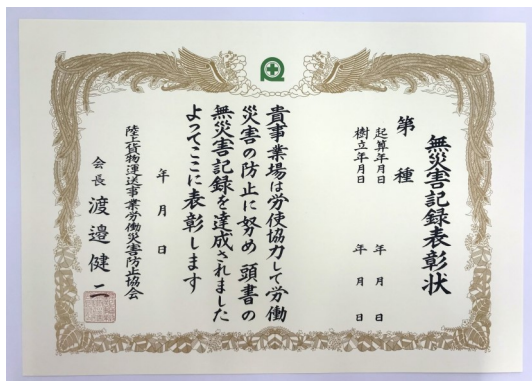 無災害記録表彰状
第　種
起算年月日　年　月　日
樹立年月日　年　月　日
貴事業場は労使協力して労働
災害の防止に努め 頭書の
無災害記録を達成されました
よってここに表彰します
年　月　日
陸上貨物運送事業労働災害防止協会
会長 渡邉健二